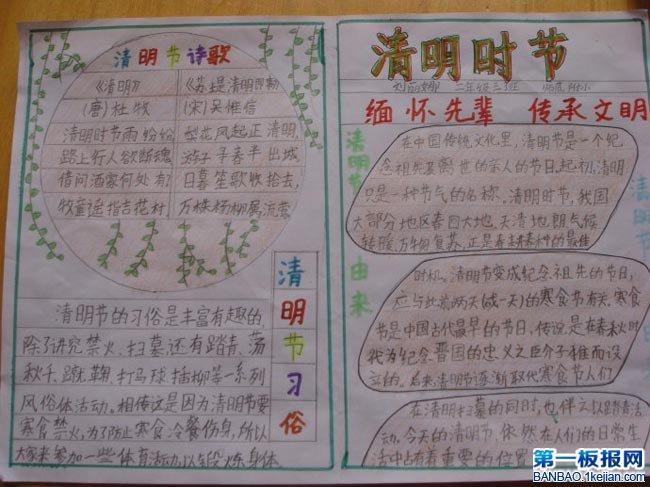 清明节诗歌
《清明》
(唐)杜牧
清明时节雨纷纷
路上行人欲断魂
借问酒家何处有
牧童遥指杏花村
《苏堤清明即事》
(宋)吴惟信
梨花风起正清明,
游子寻春半出城
日暮笙歌收拾去,
万株杨柳属流莺
清明节习俗
清明节的习俗是丰富有趣的,
除了讲究禁火、扫墓,还有踏青、荡
秋千、蹴鞠、打马球、插柳等一系列
风俗体活动。相传这是因为清明节要
寒食禁火,为了防止寒食冷餐伤身,所以
大家来参加一些体育活动,以锻炼身体
清明时节
刘丽娜 二年级三班 附小
缅怀先辈 传承文明
清明节由来
在中国传统文化里,清明节是一个纪
念祖先及离世的亲人的节日。起初,清明
只是一种节气的名称。清明时节,我国
大部分地区春回大地,天清地朗,气候
转暖,万物复苏,正是春耕春种的最佳
时机。清明节变成纪念祖先的节日,
应与此前两天(或一天)的寒食节有关。寒食
节是中国古代最早的节日,传说是在春秋时
代为纪念晋国的忠义之臣介子推而设
立的。后来清明节逐渐取代寒食节人们
在清明扫墓的同时,也伴之以踏青活
动。今天的清明节,依然在人们的日常生
活中占有着重要的位置
第一板报网
BANBAO.1kejian.com